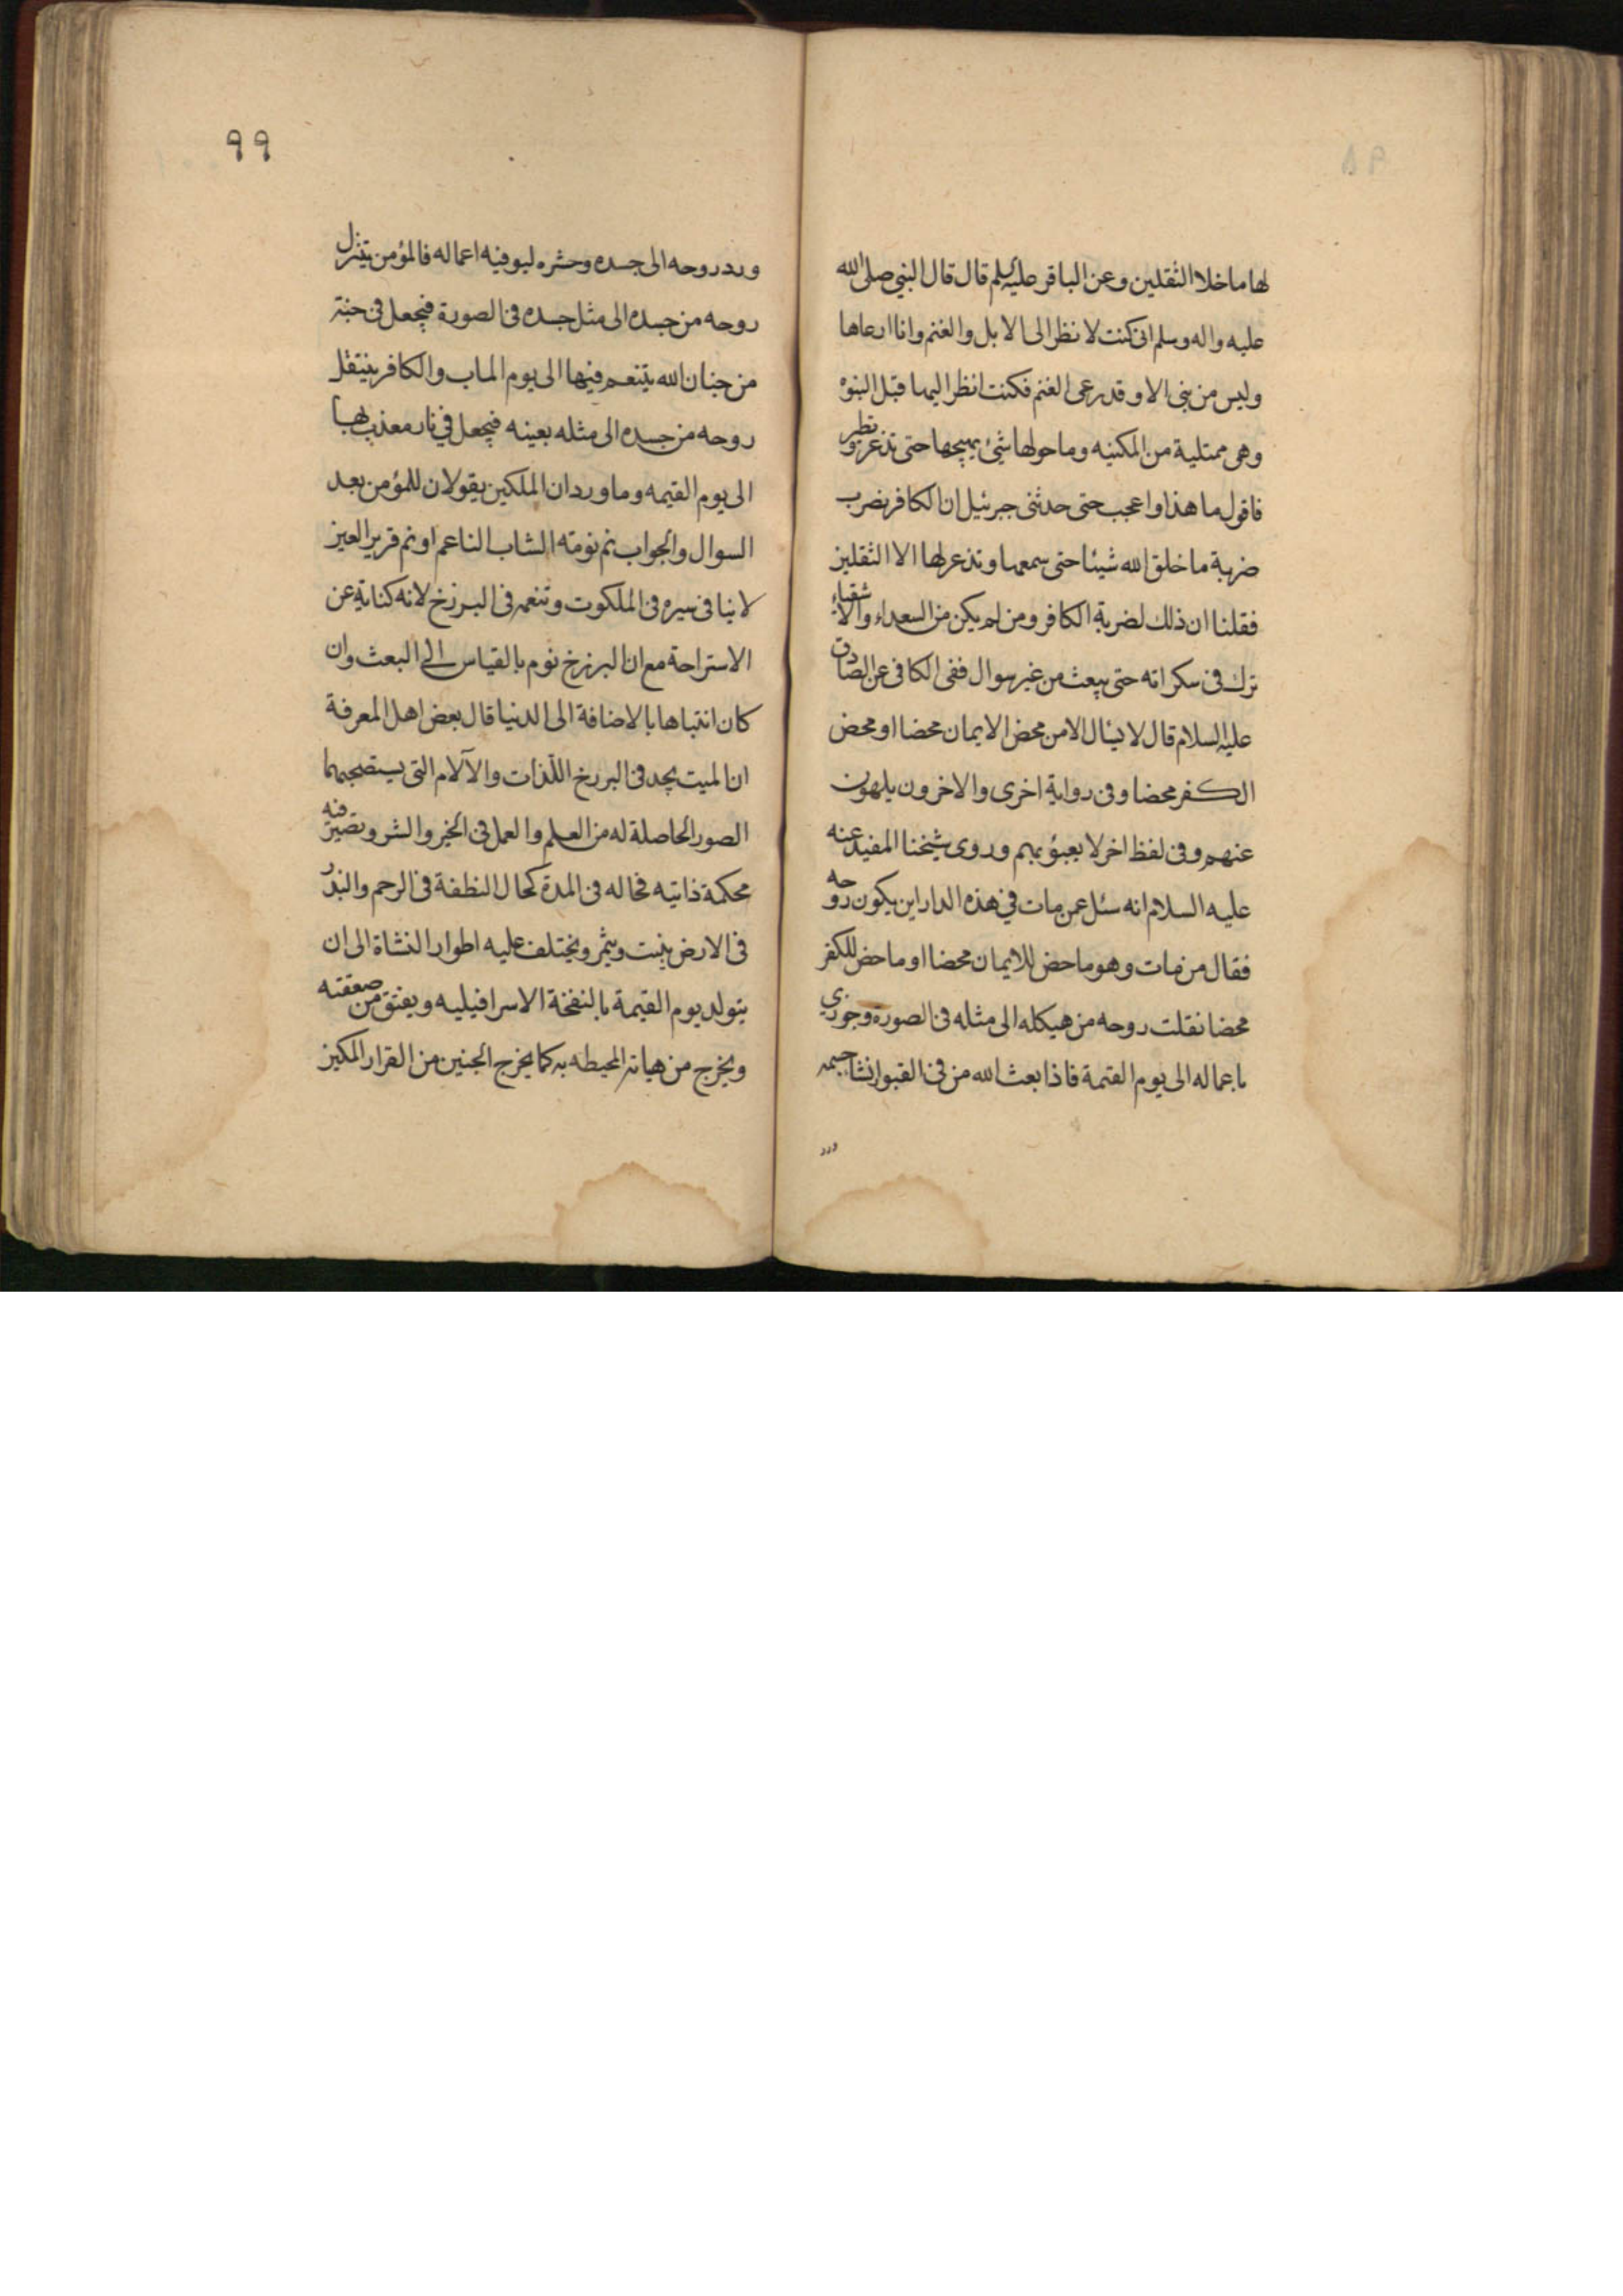 لها ما خلا الثقلين وعن الباقر عليه السلم قال قال النبي صلى الله
عليه واله وسلم انى كنت لا نظر الى الابل والغنم وانا ارعاها
وليس من بنى الا وقد رعى الغنم فكنت انظر اليها قبل النبوة
وهى ممتلية من المكنيه وما حولها شئ يهيجها حتى تذعر وتطير
فاقول ما هذا واعجب حتى حدثنى جبرئيل ان الكافر يضرب
ضربة ما خلق الله شيئا حتى سمعها وتذعر لها الا الثقلين
فقلنا ان ذلك لضربة الكافر ومن لم يكن من السعداء والاشقياء
ترك فى سكراته حتى يبعث من غير سوال ففى الكافى عن الصادق
عليه السلام قال لا يسال الا من محض الايمان محضا او محض
الكفر محضا وفى رواية اخرى والاخرون يلهون
عنهم وفى لفظ اخر لا يعبؤ بهم وروى شيخنا المفيد عنه
عليه السلام انه سئل عمن مات في هذه الدار اين يكون روحه
فقال من مات وهو ماحض للايمان محضا او ماحض للكفر
محضا نقلت روحه من هيكله الى مثله فى الصورة وجوزى
باعماله الى يوم القيمة فاذا بعث الله من فى القبور انشا جسمه
ورد
٩٩
ورد روحه الى جسده وحشره ليوفيه اعماله فالمؤمن يتنزل
روحه من جسده الى مثل جسده فى الصورة فيجعل فى جنة
من جنان الله يتنعم فيها الى يوم الماب والكافر ينتقل
روحه من جسده الى مثله بعينه فيجعل في نار معذب بها
الى يوم القيمه وما ورد ان الملكين يقولان للمؤمن بعد
السوال والجواب نم نومة الشاب الناعم او نم قرير العين
لا ينافى سيره فى الملكوت وتنعمه فى البرزخ لانه كناية عن
الاستراحة مع ان البرزخ نوم بالقياس الى البعث وان
كان انتباها بالاضافة الى الدنيا قال بعض اهل المعرفة
ان الميت يجد فى البرزخ اللذات والآلام التى يستصحبهما
الصور الحاصلة له من العلم والعمل فى الخير والشر وتصير فيه
محكمة ذاتيه فحاله فى المدة كحال النطفة فى الرحم والبذر
فى الارض ينبت ويثمر ويختلف عليه اطوار النشاة الى ان
يتولد يوم القيمة بالنفخة الاسرافيليه ويفيق من صعقته
ويخرج من هياته المحيطه به كما يخرج الجنين من القرار المكين